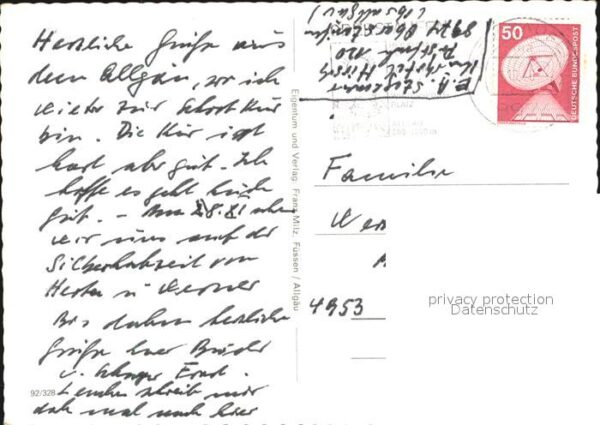 Herzliche Grüße aus
dem Allgäu, wo ich
wieder zur Schrothkur
bin. Die Kur ist
hart aber gut. Ich
hoffe es geht Euch
gut. – Am 8.81 sehen
wir uns auf der
Silberhochzeit von
Herta u. Werner
Bis dahin herzliche
Grüße Euer Bruder
u. Schwager Ernst.
schreib mir
doch mal nach hier
92/328
Eigentum und Verlag: Franz Milz, Füssen / Allgäu
Kurhotel
Postfach 120
8974 Oberstaufen
50
DEUTSCHE BUNDESPOST
Familie
4953
privacy protection
Datenschutz